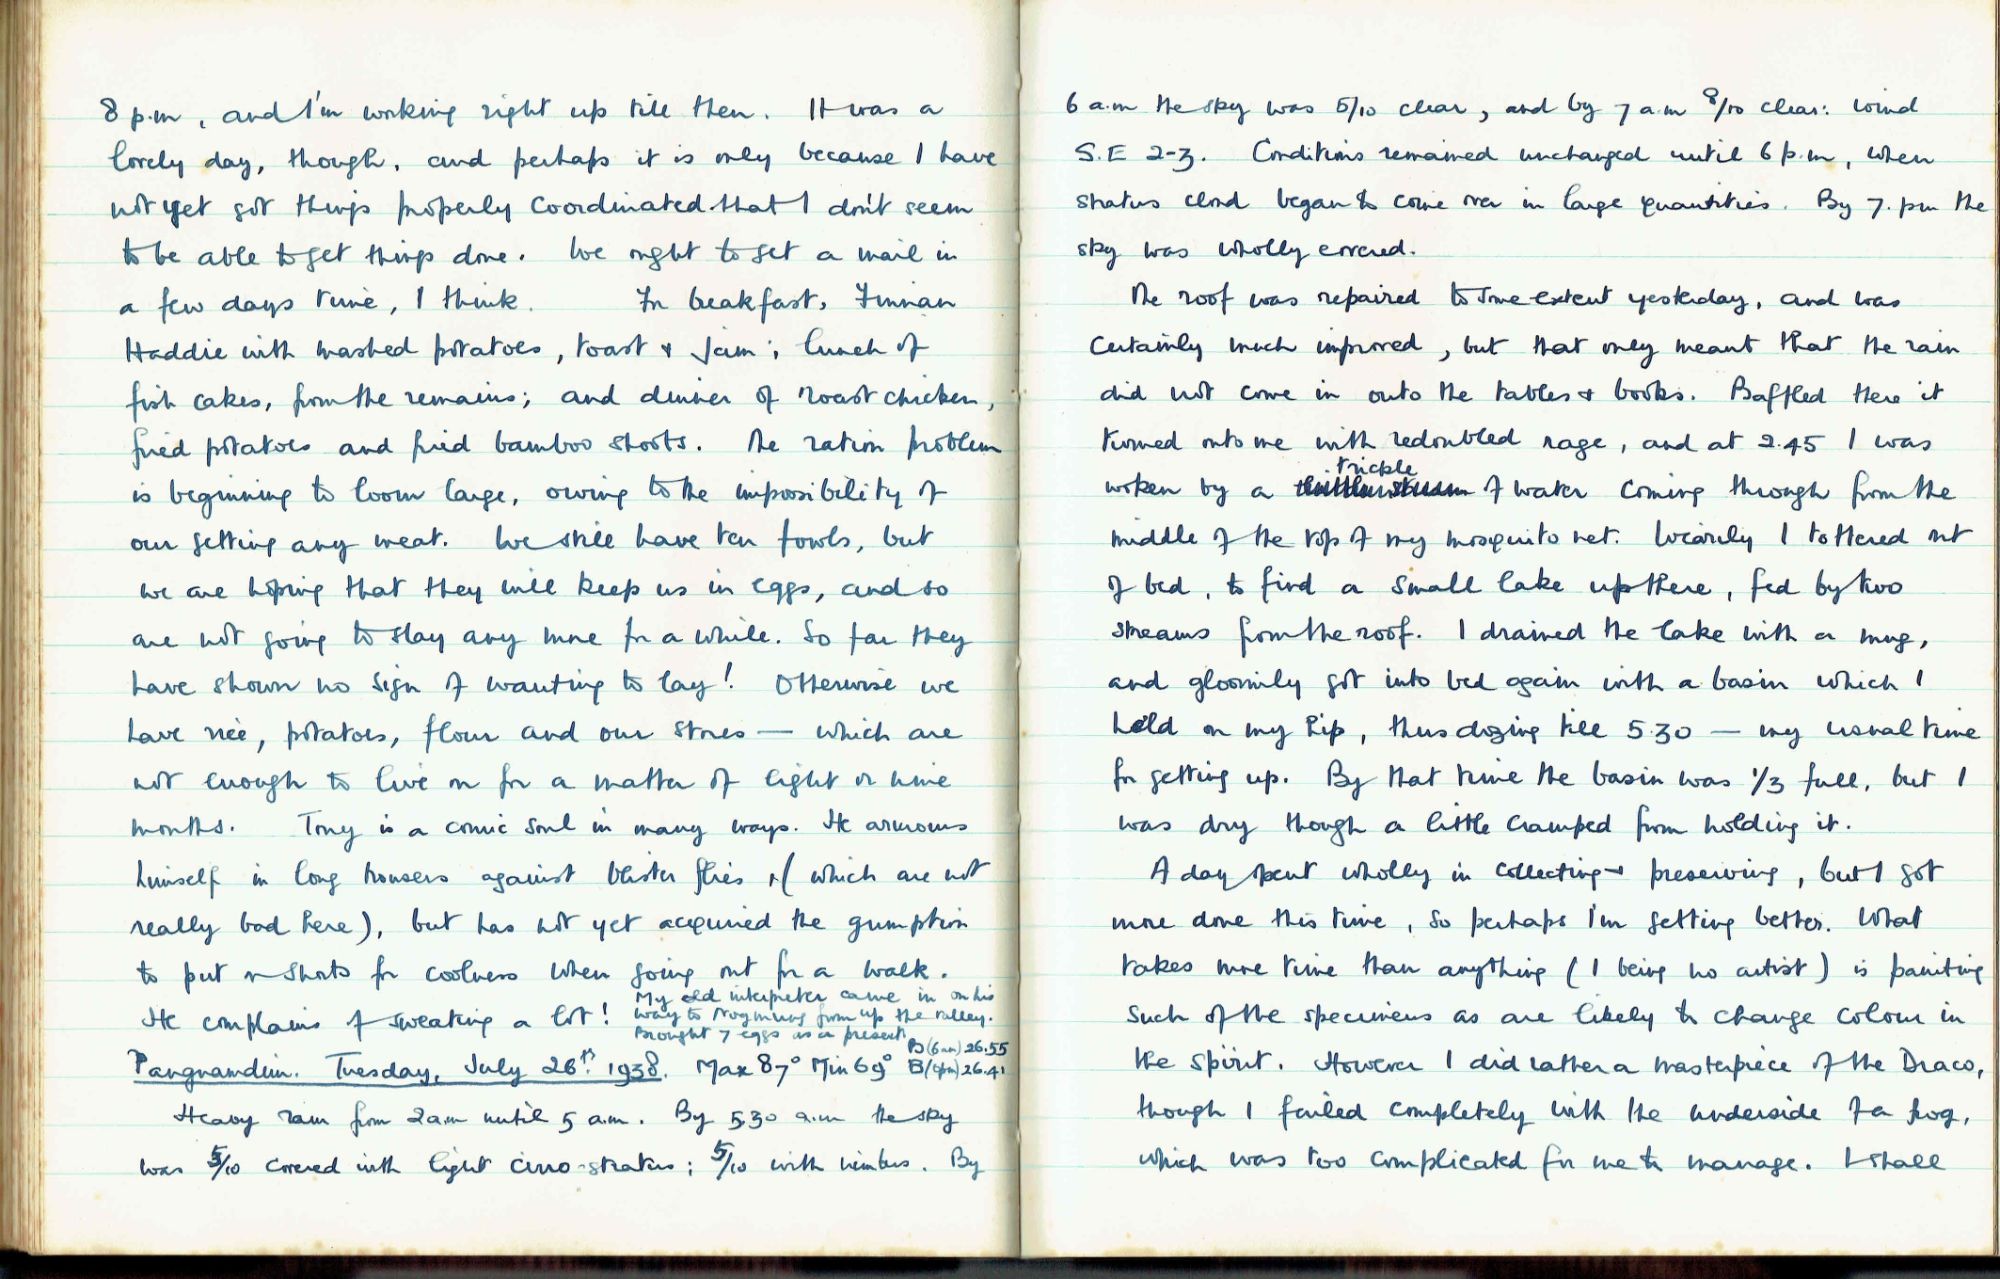 8 p.m, and I'm working right up till then. It was a
lovely day, though, and perhaps it is only because I have
not yet got things properly coordinated that I don't seem
to be able to get things done. We ought to get a mail in
a few days time, I think. For breakfast, Finnan
Haddie with mashed potatoes, toast & jam; lunch of
fish cakes, from the remains; and dinner of roast chicken,
fried potatoes and fried bamboo shoots. The ration problem
is beginning to loom large, owing to the impossibility of
our getting any meat. We still have ten fowls, but
we are hoping that they will keep us in eggs, and so
are not going to slay any more for a while. So far they
have shown no sign of wanting to lay! Otherwise we
have rice, potatoes, flour and our stores — which are
not enough to live on for a matter of eight or nine
months. Tony is a comic soul in many ways. He armours
himself in long trousers against blister flies (which are not
really bad here), but has not yet acquired the gumption
to put on shorts for coolness when going out for a walk.
He complains of sweating a lot! My old interpreter came in on his
way to Nogmung from up the valley.
Brought 7 eggs as a present.
Pangnamdim. Tuesday, July 26th. 1938. Max 87° Min 69° B (6am) 26.55
B (6pm) 26.41
Heavy rain from 2 am until 5 a.m. By 5.30 a.m the sky
was 5/10 covered with light cirro-stratus; 5/10 with nimbus. By
6 a.m the sky was 5/10 clear, and by 7 a.m 8/10 clear: wind
S.E 2-3. Conditions remained unchanged until 6 p.m, when
stratus cloud began to come over in large quantities. By 7. pm the
sky was wholly covered.
The roof was repaired to some extent yesterday, and was
certainly much improved, but that only meant that the rain
did not come in onto the tables & books. Baffled there it
turned onto me with redoubled rage, and at 2.45 I was
woken by a trickle of water coming through from the
middle of the top of my mosquito net. Wearily I tottered out
of bed, to find a small lake up there, fed by two
streams from the roof. I drained the lake with a mug,
and gloomily got into bed again with a basin which I
held on my hip, thus dozing till 5.30 — my usual time
for getting up. By that time the basin was 1/3 full, but I
was dry though a little cramped from holding it.
A day spent wholly in collecting & preserving, but I got
more done this time, so perhaps I'm getting better. What
takes more time than anything (I being no artist) is painting
such of the specimens as are likely to change colour in
the spirit. However I did rather a masterpiece of the Draco,
though I failed completely with the underside of a frog,
which was too complicated for me to manage. I shall